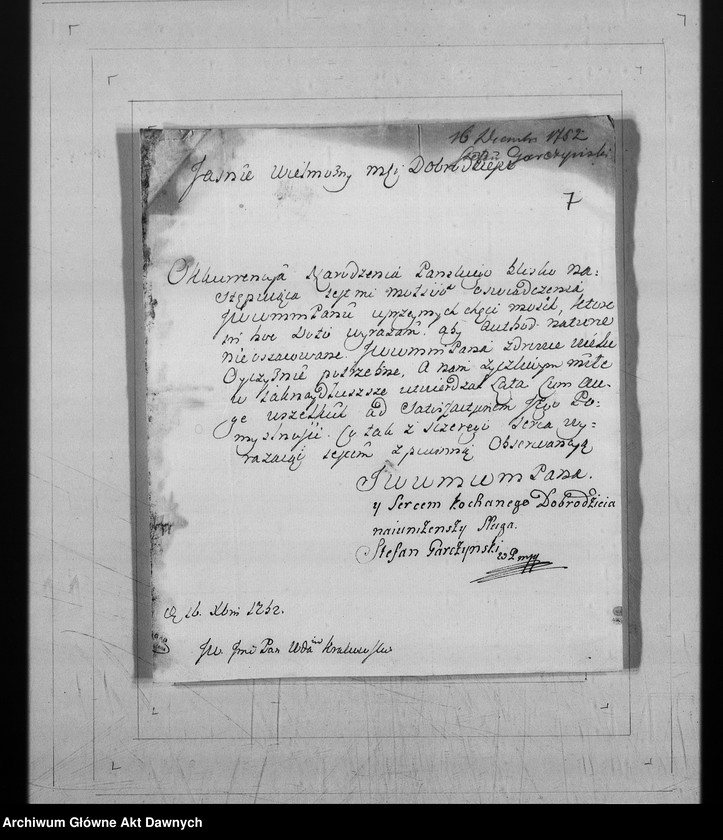 16 Decembr 1752
Stefan Garczyński
Jasnie Wielmożny mSCi Dobrodzieju
7
Okkurrencya Narodzenia Panskiego blisko na=
stępuiąca iest mi do oswiadczenia
JWWMMPanu uprzeymych chęci moich, ktore
in hoc Voto wyrażam. aby Author naturae
nieoszacowane JWWMMPana zdrowie wielce
Oyczyznie potrzebne, A nam życzliwym miłe
w iaknaydłuższe utwierdzał Lata Cum au=
ge wszelkich ad Satisfactionem Jego Po=
myslnosci. Co tak z szczerego serca wy=
razaiąc iestem z powinną Obserwancyą
JWWMMPana.
y Sercem kochanego Dobrodzieia
naiunizenszy Sługa.
Stefan Garczynski
16. Xbris 1752.
JW Jmć Pan Krakowski
Archiwum Główne Akt Dawnych